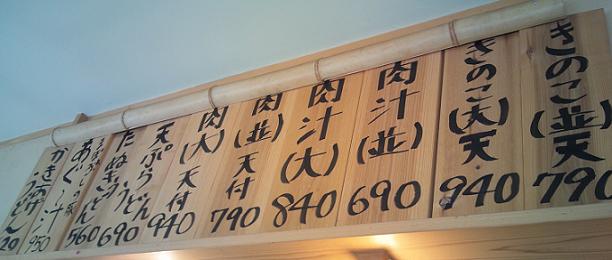 きのこ(並)天 790
きのこ(大)天 940
肉汁(並) 690
肉汁(大) 840
肉(並)天付 790
肉(大)天付 940
天ぷらうどん 940
たぬきうどん 690
560
汁 950
かき揚げうどん